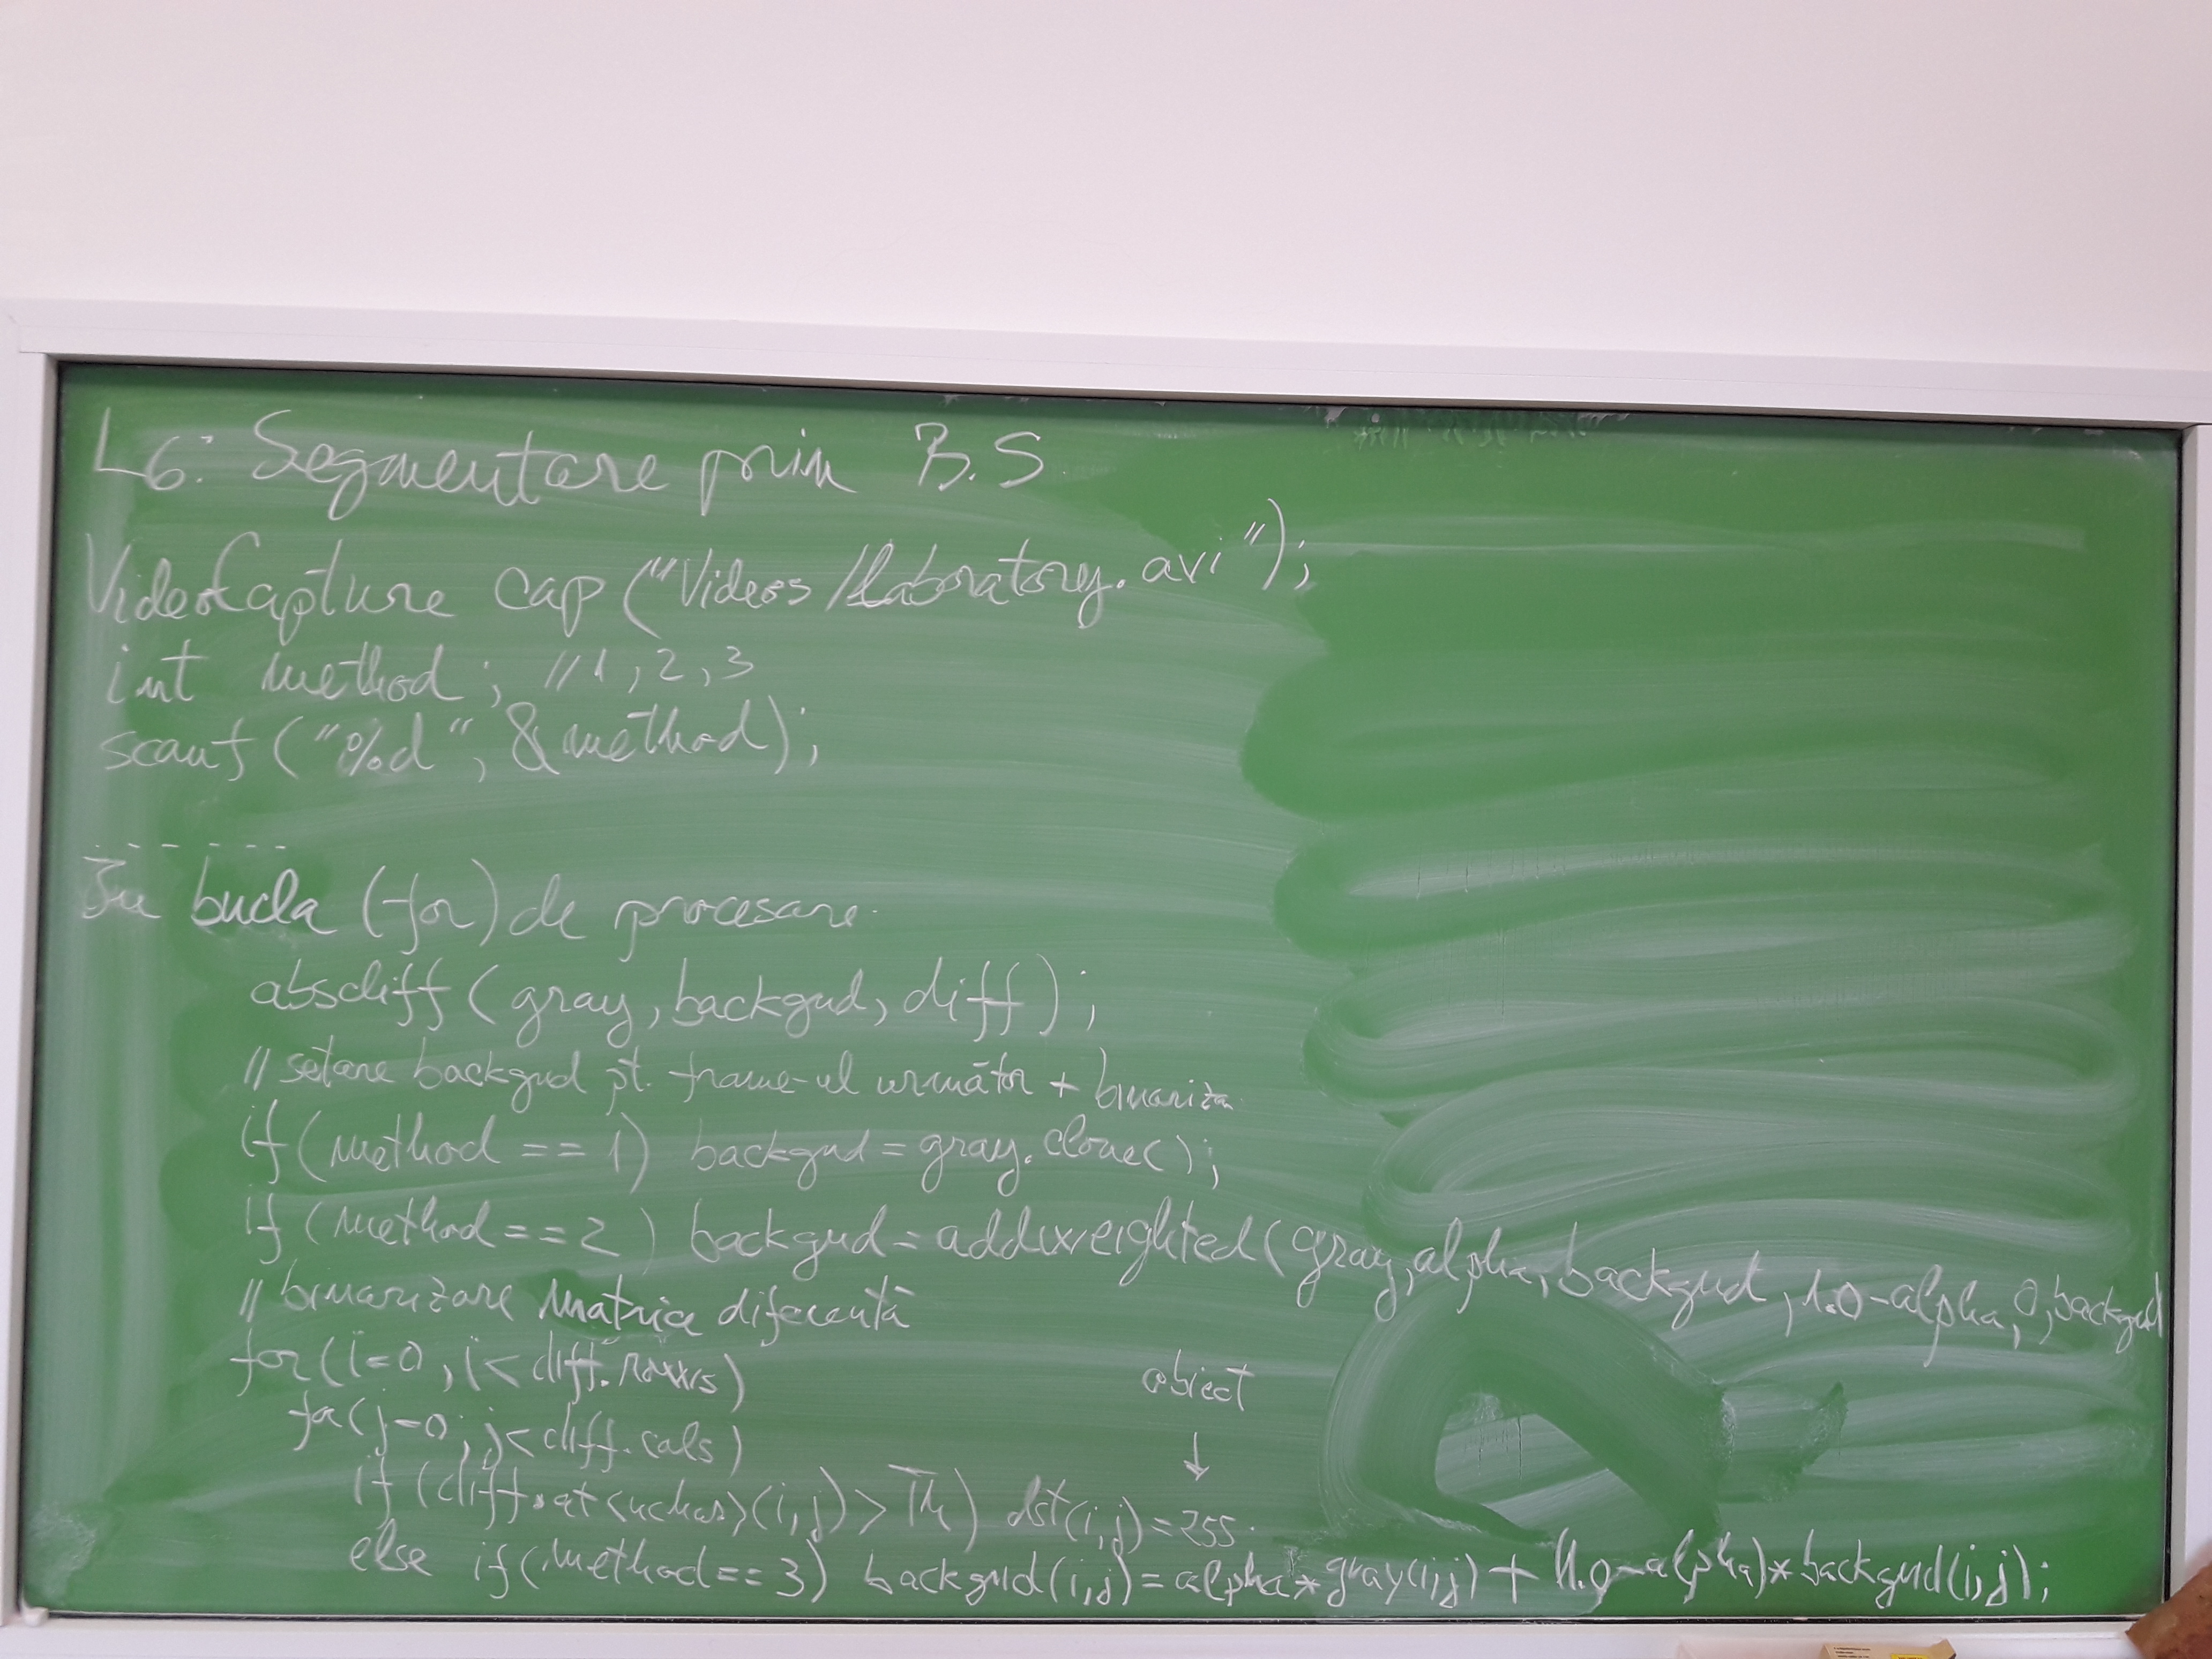 L6: Segmentare prin B.S
VideoCapture cap ("Videos/laboratory.avi");
int method; //1,2,3
scanf("%d", &method);
- - - - - - -
În bucla (for) de procesare
absdiff (gray, backgnd, diff);
// setare backgnd pt. frame-ul următor + binariza
if (method == 1) backgnd = gray.clone();
if (method == 2) backgnd = addweighted (gray, alpha, backgnd, 1.0-alpha, 0, backgnd
// binarizare matrice diferență
for (i=0, i< diff.rows)
for (j=0; j< diff.cols)
obiect
↓
if (diff.at<uchar>(i,j) > Th) dst(i,j) = 255.
else if (method == 3) backgnd(i,j) = alpha*gray(i,j) + (1.0-alpha)*backgnd(i,j);